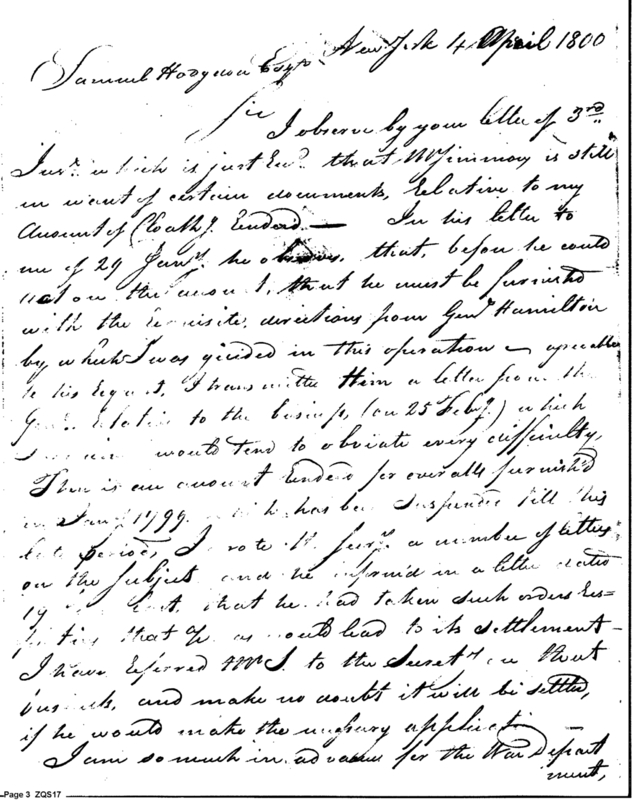 New York 4 April 1800
Samuel Hodgdon Esqr
Sir
I observe by your letter of 3rd
Inst. which is just Recd. that Mr Simmons is still
in want of certain documents, Relative to my
Account of Cloathg. Rendered. — In his letter to
me of 29 Jany. he observes, that, before he could
act on the account, that he must be furnished
with the requisite, directions from Genl. Hamilton
by which I was guided in this operation — agreeable
to his Request, I transmitted Him a letter from the
Genl. Relative to the business, (on 25 Feby.) which
would tend to obviate every difficulty,
There is an account Rendered for overalls furnished
in Jany 1799. which has been Suspended till this
late period, I wrote the a number of letters
on the subject and he inform'd in a letter dated
19 that he had taken such orders Res=
pecting that as would lead to its settlement —
I have Referred Mr S. to the Secrety on that
business, and make no doubt it will be settled,
if he would make the necessary application —
I am so much in advance for the War Depart
ment,
Page 3 ZQS17